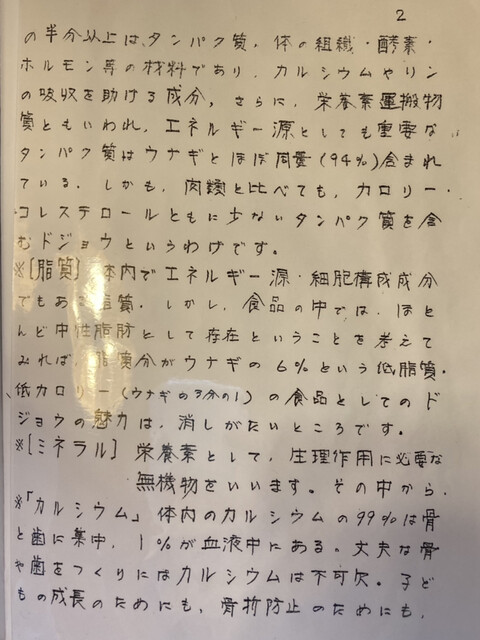 2
の半分以上は、タンパク質。体の組織・酵素・
ホルモン等の材料であり、カルシウムやリン
の吸収を助ける成分。さらに、栄養素運搬物
質ともいわれ、エネルギー源としても重要な
タンパク質はウナギとほぼ同量(94%)含まれ
ている。しかも、肉類と比べても、カロリー・
コレステロールともに少ないタンパク質を含
むドジョウというわけです。
※[脂質] 体内でエネルギー源・細胞構成成分
でもある脂質。しかし、食品の中では、ほと
んど中性脂肪として存在ということを考えて
みれば、脂質分がウナギの6%という低脂質・
低カロリー(ウナギの3分の1)の食品としてのド
ジョウの魅力は、消しがたいところです。
※[ミネラル] 栄養素として、生理作用に必要な
無機物をいいます。その中から、
※「カルシウム」体内のカルシウムの99%は骨
と歯に集中、1%が血液中にある。丈夫な骨
や歯をつくりにはカルシウムは不可欠。子ど
もの成長のためにも、骨折防止のためにも、